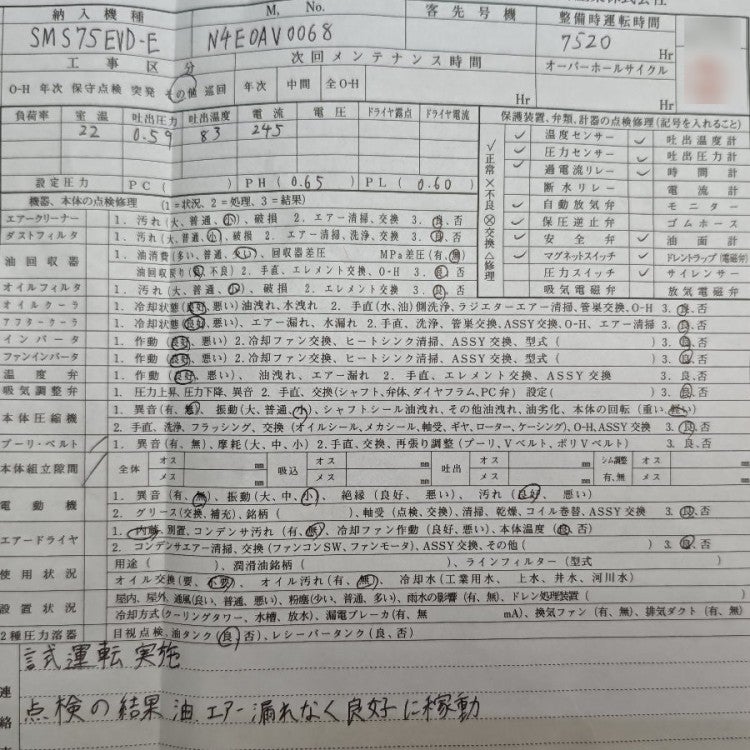 納入機種 M, No. 客先号機 整備時運転時間
SMS75EVD-E N4E0AV0068 7520 Hr
工事区分 次回メンテナンス時間 オーバーホールサイクル
O-H 年次 保守点検 突発 その他 巡回 年次 中間 全O-H Hr Hr
負荷率 室温 吐出圧力 吐出温度 電流 電圧 ドライヤ露点 ドライヤ電流
22 0.59 83 245
設定圧力 PC ( ) PH (0.65) PL (0.60)
保護装置、弁類、計器の点検修理(記号を入れること)
✓正常 ×不良 ⊗交換 △修理
✓ 温度センサー ✓ 吐出温度計
✓ 圧力センサー ✓ 吐出圧力計
✓ 過電流リレー ✓ 時間計
断水リレー 電流計
✓ 自動放気弁 モニター
✓ 保圧逆止弁 ゴムホース
✓ 安全弁 ✓ 油面計
✓ マグネットスイッチ ✓ ドレントラップ(電磁弁)
圧力スイッチ ✓ サイレンサー
吸気電磁弁 放気電磁弁
機器、本体の点検修理 (1=状況、2=処理、3=結果)
エアークリーナー 1. 汚れ(大、普通、小)、破損 2. エアー清掃、交換 3. 良、否
ダストフィルタ 1. 汚れ(大、普通、小)、破損 2. エアー清掃、洗浄、交換 3. 良、否
油回収器 1. 油消費(多い、普通、少い)、回収器差圧 MPa差圧(有、無)
油回収戻り(良、不良) 2. 手直、エレメント交換、O-H 3. 良、否
オイルフィルタ 1. 汚れ(大、普通、小)、破損 2. 手直、エレメント交換 3. 良、否
オイルクーラ 1. 冷却状態(良好、悪い)油洩れ、水洩れ 2. 手直(水、油)側洗浄、ラジエターエアー清掃、管巣交換、O-H 3. 良、否
アフタークーラ 1. 冷却状態(良好、悪い)、エアー漏れ、水漏れ 2. 手直、洗浄、管巣交換、ASSY交換、O-H、エアー清掃 3. 良、否
インバータ 1. 作動 (良好、悪い) 2. 冷却ファン交換、ヒートシンク清掃、ASSY交換、型式( ) 3. 良、否
ファンインバータ 1. 作動 (良好、悪い) 2. 冷却ファン交換、ヒートシンク清掃、ASSY交換、型式( ) 3. 良、否
温度弁 1. 作動 (良好、悪い)、油洩れ、エアー漏れ 2. 手直、エレメント交換、ASSY交換 3. 良、否
吸気調整弁 1. 圧力上昇、圧力下降、異音 2. 手直、交換(シャフト、弁体、ダイヤフラム、PC弁) 設定( ) 3. 良、否
本体圧縮機 1. 異音(有、無)、振動(大、普通、小)、シャフトシール油洩れ、その他油洩れ、油劣化、本体の回転(重い、軽い)
2. 手直、洗浄、フラッシング、交換(オイルシール、メカシール、軸受、ギヤ、ローター、ケーシング)、O-H、ASSY交換 3. 良、否
プーリ・ベルト 1. 異音(有、無)、摩耗(大、中、小) 2. 手直、交換、再張り調整(プーリ、Vベルト、ポリVベルト) 3. 良、否
本体組立隙間 全体 オス mm メス mm 吸込 オス mm メス mm 吐出 オス mm メス mm シム調整 有、無 オス mm メス mm
電動機 1. 異音(有、無)、振動(大、中、小)、絶縁(良好、悪い)、汚れ(良好、悪い)
2. グリース(交換、補充)、銘柄( )、軸受(点検、交換)、清掃、乾燥、コイル巻替、ASSY交換 3. 良、否
エアードライヤ 1. 内蔵、別置、コンデンサ汚れ(有、無)、冷却ファン作動(良好、悪い)、本体温度(良、否)
2. コンデンサエアー清掃、交換(ファンコンSW、ファンモータ)、ASSY交換、その他( ) 3. 良、否
使用状況 用途( )、潤滑油銘柄( )、ラインフィルター(型式 )
オイル交換(要、不要)、オイル汚れ(有、無)、冷却水(工業用水、上水、井水、河川水)
設置状況 屋内、屋外、通風(良い、普通、悪い)、粉塵(少い、普通、多い)、雨水の影響(有、無)、ドレン処理装置( )
冷却方式(クーリングタワー、水槽、放水)、漏電ブレーカ(有、無 mA)、換気ファン(有、無)、排気ダクト(有、無)
2種圧力溶器 目視点検、油タンク(良、否)、レシーバータンク(良、否)
連絡
試運転実施
点検の結果 油 エアー漏れなく良好に稼動